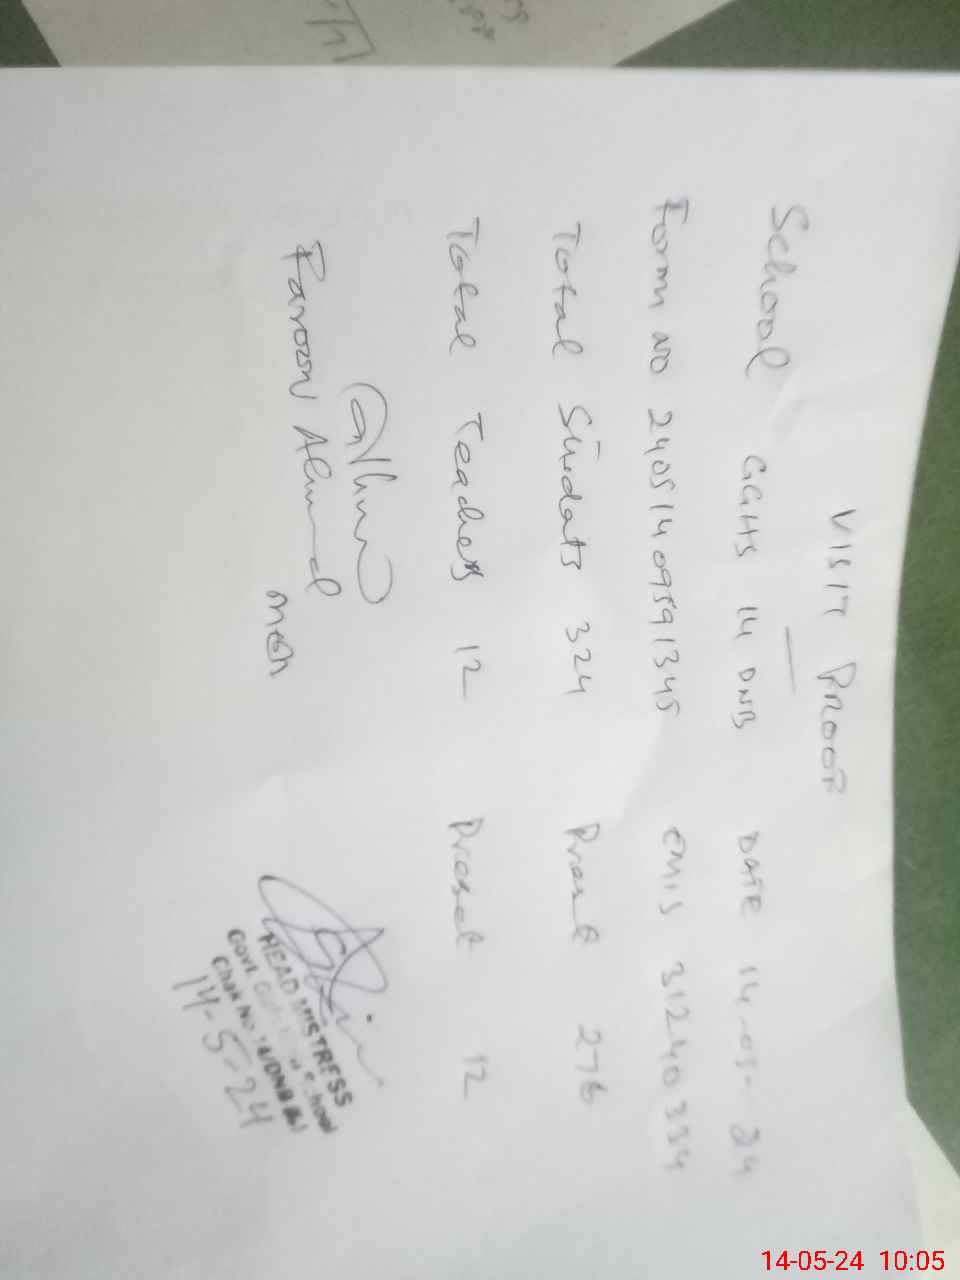 VISIT PROOF
School GGHS 14 DNB DATE 14-05-24
Form NO 24051409591345 EMIS 31240334
Total Studats 324 Presnt 276
Total Teachers 12 Preset 12
Farooq Ahmad
MEA
HEAD MISTRESS
Govt. School
Chak No 14/DNB
14-5-24
14-05-24 10:05